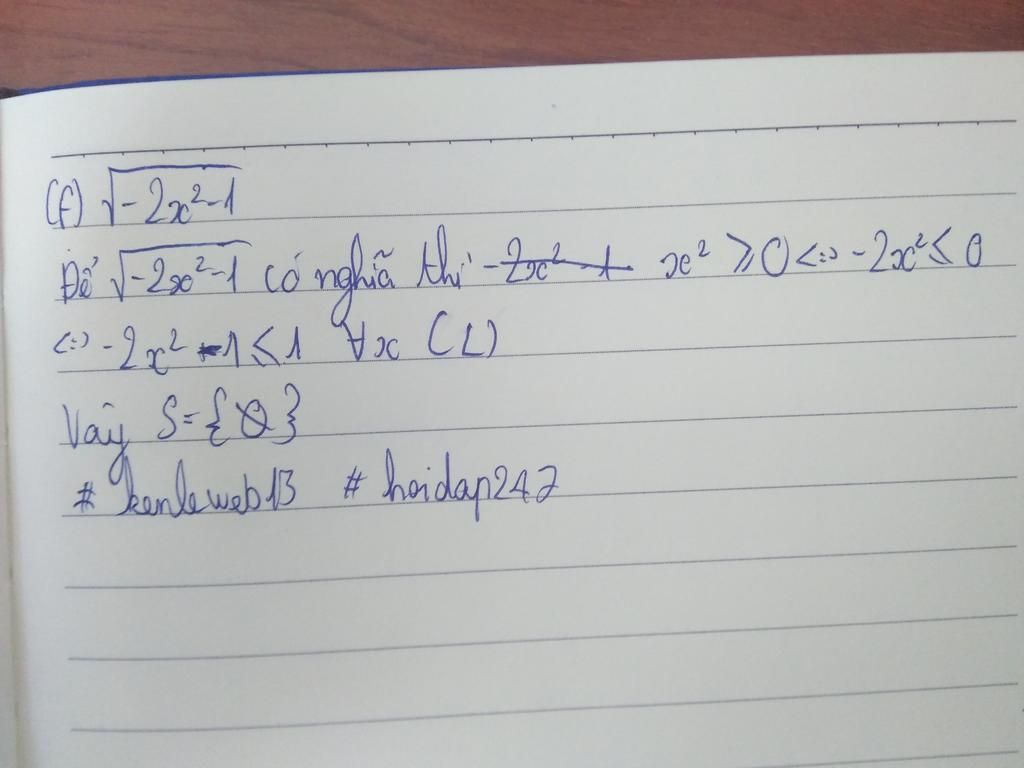 (f) √-2x²-1
Để √-2x²-1 có nghĩa thì -2x²-1 x² ≥ 0 <=> -2x² ≤ 0
<=> -2x² -1 ≤ 1 ∀x (L)
Vậy S = {∅}
# kenleweb13 # hoidap247